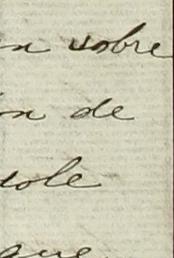 n sobre
ón de
dole
que